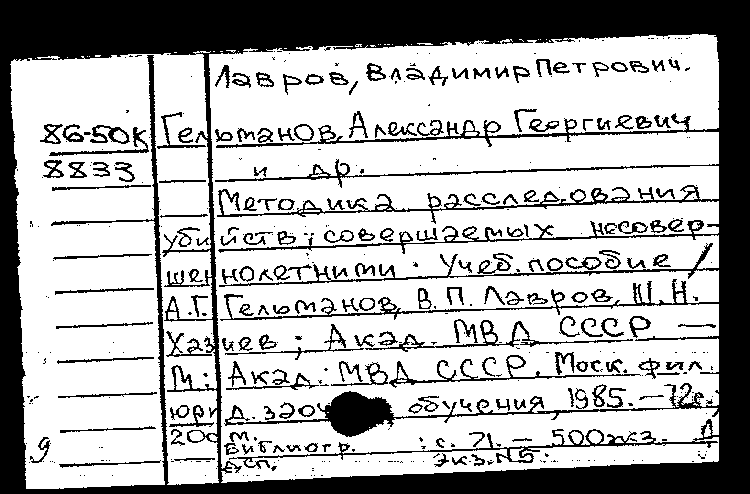 Лавров, Владимир Петрович.
86-50К Гельманов, Александр Георгиевич
8833 и др.
Методика расследования
убийств, совершаемых несовер-
шеннолетними. Учеб. пособие /
А.Г. Гельманов, В.П. Лавров, Ш.Н.
Хазиев; Акад. МВД СССР. —
М.: Акад. МВД СССР. Моск. фил.
юрид. заоч обучения, 1985. — 72с.;
20см.
Библиогр. : с. 71. — 500экз. Д
9 дсп. экз.N5.